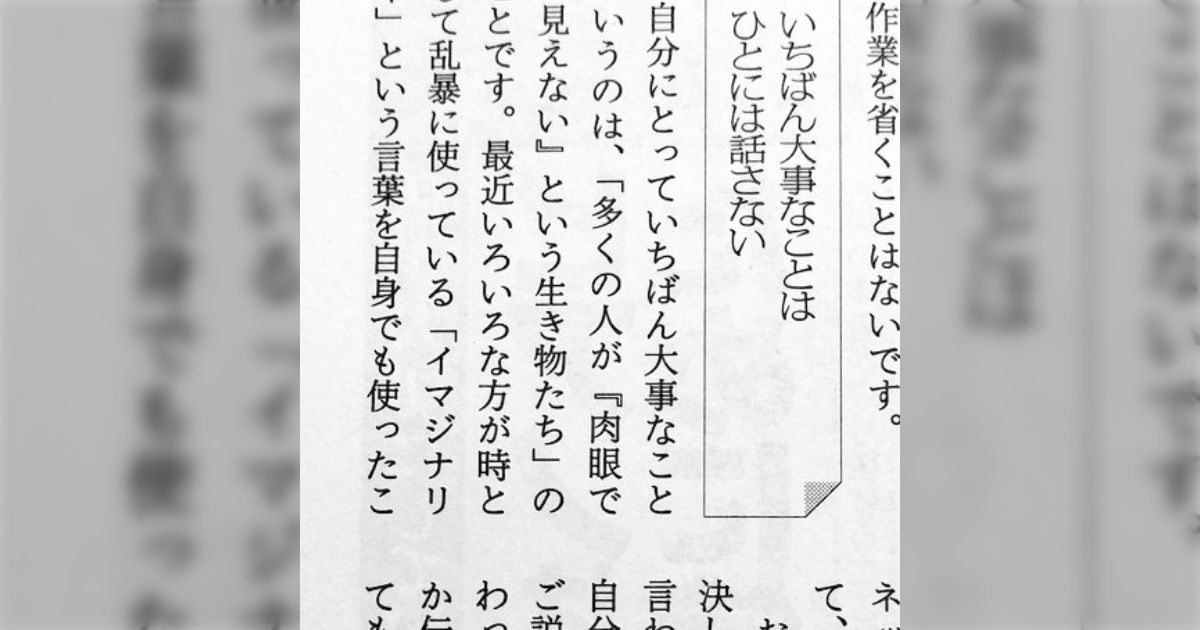 作業を省くことはないです。
いちばん大事なことは
ひとには話さない
自分にとっていちばん大事なこと
いうのは、「多くの人が『肉眼で
見えない』という生き物たち」の
とです。最近いろいろな方が時と
て乱暴に使っている「イマジナリ
」という言葉を自身でも使ったこ
ネッ
て、
決し
言わ
自分
ご説
わっ
か伝
ても